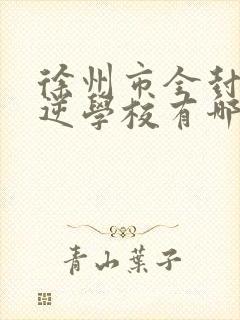 徐州市全封
逆學校有哪
青山葉子